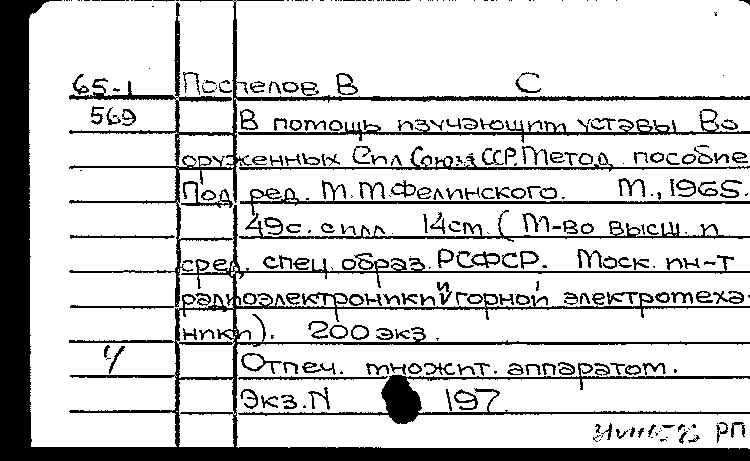 65-1 Поспелов, В С
569 В помощь изучающим уставы Во
оруженных Сил Союза ССР. Метод. пособие
Под ред. М.М.Фелинского. М., 1965.
49с. с илл. 14см. (М-во высш. и
сред. спец. образ. РСФСР. Моск. ин-т
радиоэлектроники и горной электромеха-
ники). 200 экз.
Отпеч. множит. аппаратом.
Экз.N 197
РП